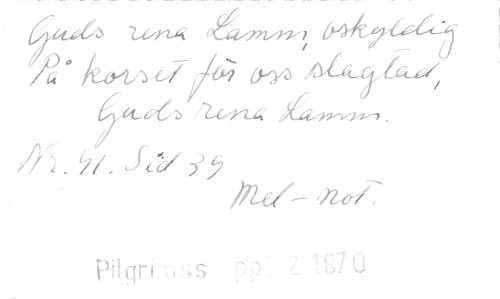 Guds rena Lamm, oskyldig
På korset för oss slagtad,
Guds rena Lamm.
Nr. 91. Sid 39
Mel-not.
Pilgrimss uppl 2 1870